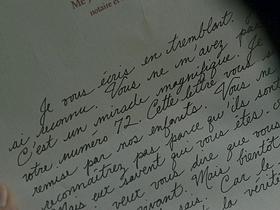 notaire et
Je vous écris en tremblant.
ai reconnu. Vous ne m'avez pas
C'est un miracle magnifique. Je
votre numéro 72. Cette lettre vous
remise par nos enfants. Vous ne
reconnaîtrez pas parce qu'ils sont
Mais eux savent qui vous êtes.
veut vous dire que vous
vivant. Mais bientôt
Car le
la vérité